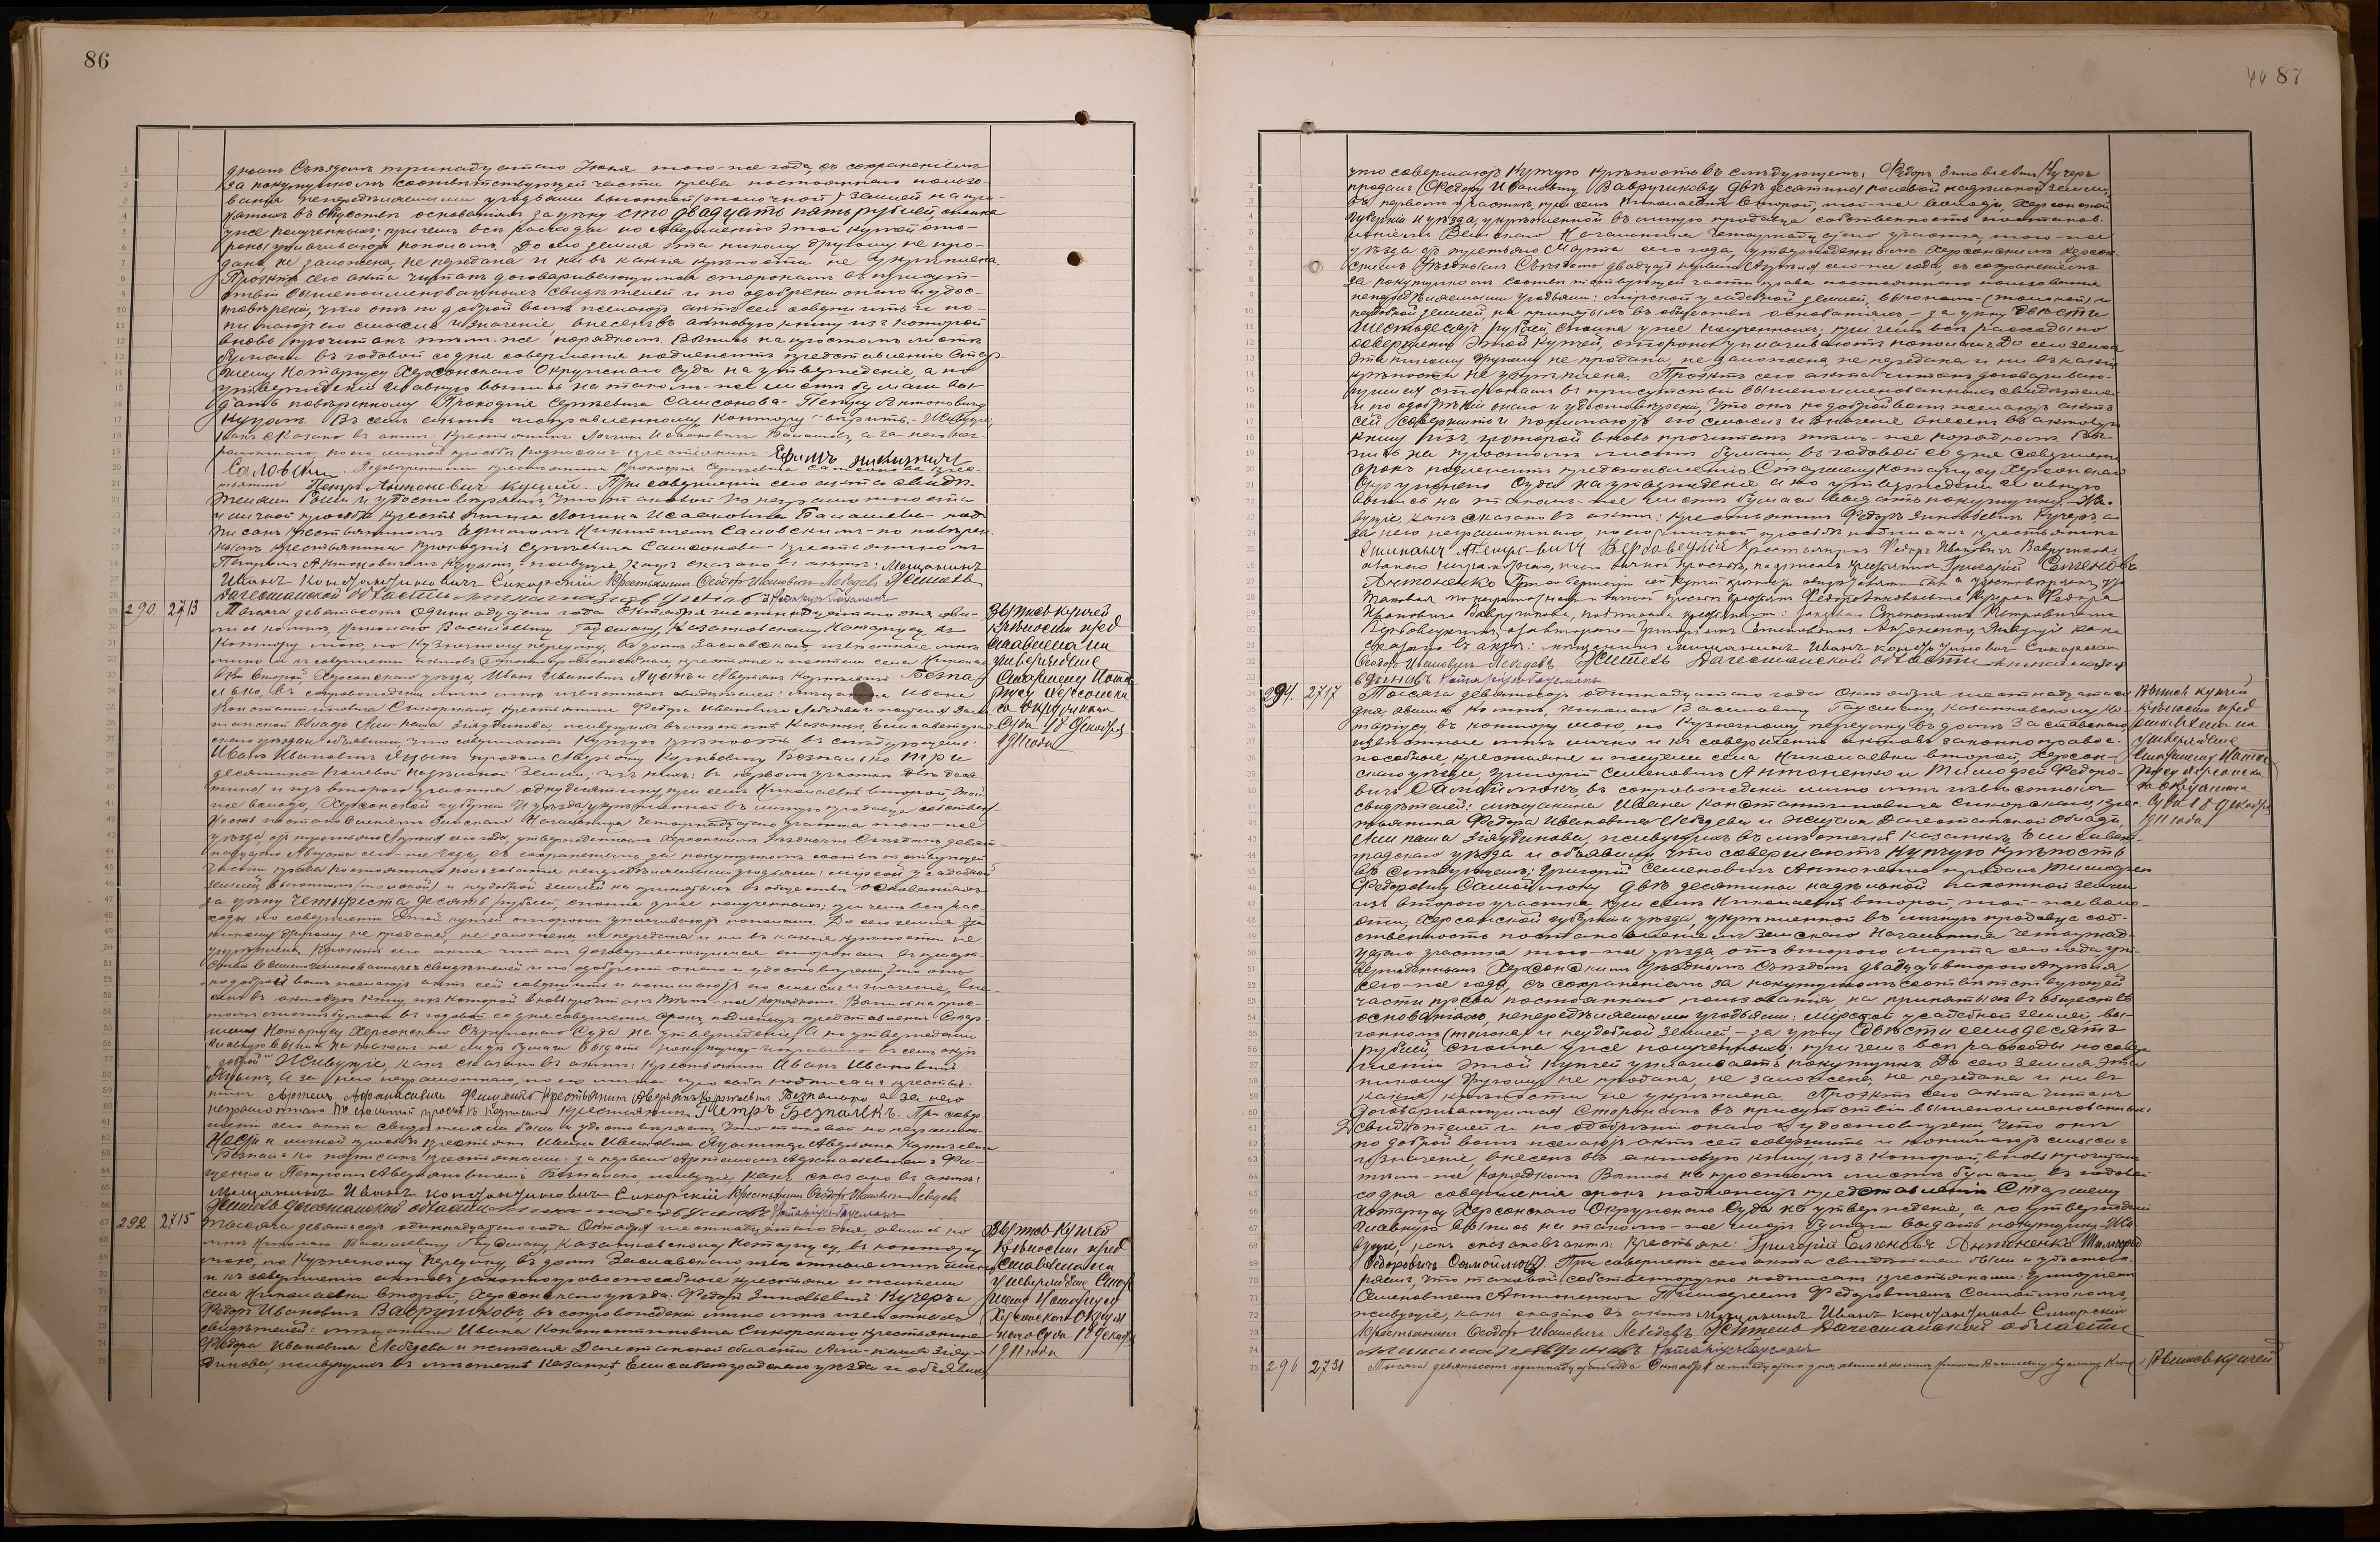 86
днымъ Съѣздомъ тринадцатаго Іюня того-же года, съ сохраненіемъ
за покупщикомъ соотвѣтствующей части права постояннаго пользо-
ванія нераздѣляемыми угодьями выгонной (толочной) землей на при-
нятомъ въ обществѣ основаніяхъ за цѣну сто двадцать пять рублей, сполна
уже полученныхъ; при чемъ всѣ расходы по совершенію этой купчей сто-
роны уплачиваютъ пополамъ. До сего земля эта никому другому не про-
дана, не заложена, не передана и ни въ какія крѣпости не укрѣплена.
Проэктъ сего акта читанъ договаривающимся сторонамъ въ присут-
ствіи вышепоименованныхъ свидѣтелей и по одобреніи онаго и удос-
товѣреніи, что они по доброй волѣ желаютъ актъ сей совершить и по-
нимаютъ его смыслъ и значеніе, внесенъ въ актовую книгу изъ которой
вновь прочитанъ тѣмъ-же порядкомъ. Выпись на простомъ листѣ
бумаги въ годовой со дня совершенія подлежитъ представленію Стар-
шему Нотаріусу Херсонскаго Окружнаго Суда на утвержденіе, а по
утвержденіи главную выпись на такомъ-же листѣ бумаги вы-
дать повѣренному Прокофія Сергѣевича Самсонова - Петру Антоновичу
Куцему. Въ семъ актѣ исправленному "контору" вѣрить. - Живущіе,
какъ сказано въ актѣ: крестьянинъ Логгинъ Исааковичъ Балашевъ, а за него неграм-
отнаго по его личной просьбѣ росписался крестьянинъ Ефимъ Никитичъ
Саловскій. Повѣренный крестьянина Прокофія Сергѣевича Самсонова крес-
тьянинъ Петръ Антоновичъ Куцый. При совершеніи сего акта свидѣ-
телями были и удостовѣряемъ, что таковой по неграмотности
и личной просьбѣ крестьянина Логгина Исааковича Балашева - под-
писанъ крестьяниномъ Ефимомъ Никитичемъ Саловскимъ - по повѣрен-
нымъ крестьянина Прокофія Сергѣевича Самсонова - крестьяниномъ
Петромъ Антоновичемъ Куцымъ, живущіе какъ сказано въ актѣ: Мещанинъ
Иванъ Константиновичъ Сикорскій Крестьянинъ Ѳеодоръ Ивановичъ Лебедевъ Житель
Дагестанской области Нотаріусъ Гаусманъ
290 2713 Тысяча девятьсотъ одиннадцатаго года Октября шестнадцатаго дня, яви-
лись ко мнѣ, Николаю Васильевичу Гаусману, Казанковскому Нотаріусу въ
контору мою, по Кузнечному переулку, въ домѣ Заславскаго, извѣстные мнѣ
лично и къ совершенію актовъ законноправоспособные, крестьяне и жители села Николаев-
ки второй Херсонскаго уѣзда, Иванъ Ивановичъ Яцынъ и Аверьянъ Корнѣевичъ Безпа-
лько, въ сопровожденіи лично мнѣ извѣстныхъ свидѣтелей: мѣщанина Ивана
Константиновича Сикорскаго, крестьянина Федора Ивановича Лебедева и жителя Даге-
станской области Али паша Зіяудинова, живущихъ въ мѣстечкѣ Казанкѣ, Елисаветград-
скаго уѣзда и объявили, что совершаютъ купчую крѣпость въ слѣдующемъ:
Иванъ Ивановичъ Яцынъ продалъ Аверьяну Корнѣевичу Безпалько три
десятины полевой надѣльной земли, изъ нихъ: въ первомъ участкѣ двѣ деся-
тины и изъ второго участка одну десятину, при селѣ Николаевкѣ второй, той-
же волости, Херсонской губерніи и уѣзда, укрѣпленной въ личную продавца собствен-
ность постановленіемъ Земскаго Начальника Четырнадцатаго участка того-же
уѣзда, отъ третьяго Апрѣля сего года, утвержденнымъ Херсонскимъ Уѣзднымъ Съѣздомъ девят-
надцатаго Августа сего-же года, съ сохраненіемъ за покупщикомъ соотвѣтствующей
части права постояннаго пользованія нераздѣляемыми угодьями: мірской усадебной
землей, выгономъ (толокой) и неудобной землей на принятыхъ въ обществѣ основаніяхъ
за цѣну четыреста десять рублей, сполна уже полученныхъ; при чемъ всѣ рас-
ходы по совершенію этой купчей стороны уплачиваютъ пополамъ. До сего земля эта
никому другому не продана, не заложена, не передана и ни въ какія крѣпости не
укрѣплена. Проэктъ сего акта читанъ договаривающимся сторонамъ въ присут-
ствіи вышепоименованныхъ свидѣтелей и по одобреніи онаго и удостовѣреніи, что они
по доброй волѣ желаютъ актъ сей совершить и понимаютъ его смыслъ и значеніе, вне-
сенъ въ актовую книгу, изъ которой вновь прочитанъ тѣмъ-же порядкомъ. Выпись на прос-
томъ листѣ бумаги въ годовой со дня совершенія срокъ подлежитъ представленію Стар-
шему Нотаріусу Херсонскаго Окружнаго Суда на утвержденіе, а по утвержденіи
главную выпись на такомъ-же листѣ бумаги выдать покупщику. исправлено въ семъ актѣ
Живущіе, какъ сказано въ актѣ: крестьянинъ Иванъ Ивановичъ
Яцынъ, а за него неграмотнаго, по его личной просьбѣ подписался крестья-
нинъ Артемъ Афанасьевичъ Фищенко Крестьянинъ Аверьянъ Корнѣевичъ Безпалько а за него
неграмотнаго по его личной просьбѣ подписался крестьянинъ Петръ Безпалько. При совер-
шеніи сего акта свидѣтелями были и удостовѣряемъ, что таковой по неграмот-
ности и личной просьбѣ крестьянъ Ивана Ивановича Яцына и Аверьяна Корнѣевича
Безпалько подписанъ крестьянами: за перваго Артемомъ Афанасьевичемъ Фи-
щенко и Петромъ Аверьяновичемъ Безпалько, живущіе, какъ сказано въ актѣ:
Мещанинъ Иванъ Константиновичъ Сикорскій Крестьянинъ Ѳеодоръ Ивановичъ Лебедевъ
Житель Дагестанской области Нотаріусъ Гаусманъ
292 2715 Тысяча девятьсотъ одиннадцатаго года Октября шестнадцатаго дня, явились ко
мнѣ Николаю Васильевичу Гаусману, Казанковскому Нотаріусу, въ контору
мою, по Кузнечному переулку, въ домѣ Заславскаго, извѣстные мнѣ лично
и къ совершенію актовъ законноправоспособные крестьяне и жители
села Николаевки второй, Херсонскаго уѣзда: Федоръ Зиновьевичъ Кучеръ и
Федоръ Ивановичъ Вавручиковъ, въ сопровожденіи лично мнѣ извѣстныхъ
свидѣтелей: мѣщанина Ивана Константиновича Сикорскаго, крестьянина
Федора Ивановича Лебедева и жителя Дагестанской области Али-паша Зіяу-
динова, живущихъ въ мѣстечкѣ Казанкѣ, Елисаветградскаго уѣзда и объявили,
Выпись купчей
крѣпости пред
ставлена на
утвержденіе
Старшему Нота
ріусу Херсонска
го Окружнаго
Суда 18 Декабря
1911 года
Выпись купчей
крѣпости пред
ставлена на
утвержденіе Стар
шему Нотаріусу
Херсонскаго Окруж
наго Суда 18 Декабря
1911 года
87
что совершаютъ купчую крѣпость въ слѣдующемъ: Федоръ Зиновьевичъ Кучеръ
продалъ Федору Ивановичу Вавручикову двѣ десятины полевой надѣльной земли
въ первомъ участкѣ, при селѣ Николаевкѣ второй, той-же волости, Херсонской
губерніи и уѣзда, укрѣпленной въ личную продавца собственность постанов-
леніемъ Земскаго Начальника Четырнадцатаго участка, того-же
уѣзда отъ третьяго Марта сего года, утвержденнымъ Херсонскимъ
Уѣзднымъ Съѣздомъ двадцать перваго Апрѣля сего-же года, съ сохраненіемъ
за покупщикомъ соотвѣтствующей части права постояннаго пользованія
нераздѣляемыми угодьями: мірской усадебной землей, выгономъ (толокой) и
неудобной землей, на принятыхъ въ обществѣ основаніяхъ - за цѣну двѣсти
шестьдесятъ рублей, сполна уже полученныхъ; при чемъ всѣ расходы по
совершенію этой купчей, стороны уплачиваютъ пополамъ. До сего земля
эта никому другому не продана, не заложена, не передана и ни въ какія
крѣпости не укрѣплена. Проэктъ сего акта читанъ договариваю-
щимся сторонамъ въ присутствіи вышепоименованныхъ свидѣтелей
и по одобреніи онаго и удостовѣреніи, что они по доброй волѣ желаютъ актъ
сей совершить и понимаютъ его смыслъ и значеніе внесенъ въ актовую
книгу, изъ которой вновь прочитанъ тѣмъ-же порядкомъ. Вы-
пись на простомъ листѣ бумаги, въ годовой со дня совершенія
срокъ подлежитъ представленію Старшему Нотаріусу Херсонскаго
Окружнаго Суда на утвержденіе а по утвержденіи главную
выпись на такомъ-же листѣ бумаги выдать покупщику. - Жи-
вущіе, какъ сказано въ актѣ: крестьянинъ Федоръ Зиновьевичъ Кучеръ, а
за него неграмотнаго, по его личной просьбѣ подписался крестьянинъ
Петровичъ Вербовецкій Крестьянинъ Федоръ Ивановичъ Вавручиковъ
а за него неграмотнаго, по его личной просьбѣ, подписался крестьянинъ Григорій Семеновъ
Антоненко При совершеніи сей купчей крѣпости свидѣтелями были и удостовѣряемъ, что
таковая по неграмотности и личной просьбѣ крестьянъ Федора Зиновьевича Кучера и Федора
Ивановича Вавручикова, подписана крестьянами: за перваго Петровичемъ
Вербовецкимъ, а за втораго - Григоріемъ Семеновичемъ Антоненко, живущіе какъ
сказано въ актѣ: мещанинъ Иванъ Константиновичъ Сикорскій
Ѳеодоръ Ивановичъ Лебедевъ Житель Дагестанской области
Нотаріусъ Гаусманъ
294. 2717 Тысяча девятьсотъ одиннадцатаго года Октября шестнадцатаго
дня, явились ко мнѣ, Николаю Васильевичу Гаусману, Казанковскому Но-
таріусу, въ контору мою, по Кузнечному переулку въ домѣ Заславскаго,
извѣстные мнѣ лично и къ совершенію актовъ законноправо-
способные, крестьяне и жители села Николаевки второй, Херсон-
скаго уѣзда, Григорій Семеновичъ Антоненко и Тимофей Федоро-
вичъ Самойлюкъ, въ сопровожденіи лично мнѣ извѣстныхъ
свидѣтелей: мѣщанина Ивана Константиновича Сикорскаго, крес-
тьянина Федора Ивановича Лебедева и жителя Дагестанской области,
Али паша Зіяудинова, живущихъ въ мѣстечкѣ Казанкѣ, Елисавет-
градскаго уѣзда и объявили, что совершаютъ купчую крѣпость
въ слѣдующемъ: Григорій Семеновичъ Антоненко продалъ Тимофею
Федоровичу Самойлюку двѣ десятины надѣльной пахотной земли
изъ второго участка, при селѣ Николаевкѣ второй, той-же воло-
сти, Херсонской губерніи и уѣзда, укрѣпленной въ личную продавца соб-
ственность постановленіемъ Земскаго Начальника Четырнад-
цатаго участка того-же уѣзда, отъ второго Марта сего года, ут-
вержденнымъ Херсонскимъ Уѣзднымъ Съѣздомъ двадцать второго Апрѣля
сего-же года, съ сохраненіемъ за покупщикомъ соотвѣтствующей
части права постояннаго пользованія, на принятыхъ въ обществѣ
основаніяхъ, нераздѣляемыми угодьями: мірской усадебной землей, вы-
гономъ (толокой) и неудобной землей, - за цѣну двѣсти семьдесятъ
рублей, сполна уже полученныхъ; при чемъ всѣ расходы по совер-
шенію этой купчей уплачиваетъ покупщикъ. До сего земля эта
никому другому не продана, не заложена, не передана и ни въ
какія крѣпости не укрѣплена. Проэктъ сего акта читанъ
договаривающимся сторонамъ въ присутствіи вышепоименованныхъ
свидѣтелей и по одобреніи онаго и удостовѣреніи, что они
по доброй волѣ желаютъ актъ сей совершить и понимаютъ смыслъ
и значеніе, внесенъ въ актовую книгу, изъ которой вновь прочитанъ
тѣмъ-же порядкомъ. Выпись на простомъ листѣ бумаги, въ годовой
со дня совершенія срокъ подлежитъ представленію Старшему
Нотаріусу Херсонскаго Окружнаго Суда на утвержденіе, а по утвержденіи
главную выпись на такомъ-же листѣ бумаги выдать покупщику. - Жи-
вущіе, какъ сказано въ актѣ: крестьяне: Григорій Семеновъ Антоненко Тимофей
Федоровичъ Самойлюкъ. При совершеніи сего акта свидѣтелями были и удостовѣ-
ряемъ, что таковой собственноручно подписанъ крестьянами: Григоріемъ
Семеновичемъ Антоненко и Тимофеемъ Федоровичемъ Самойлюкомъ,
живущіе, какъ сказано въ актѣ мещанинъ Иванъ Константиновъ Сикорскій
Крестьянинъ Ѳеодоръ Ивановичъ Лебедевъ Житель Дагестанской области
Нотаріусъ Гаусманъ
296 2731 Тысяча девятьсотъ одиннадцатаго года Октября семнадцатаго дня, явились ко мнѣ, Николаю Васильевичу Гаусману,
Выпись купчей
крѣпости пред
ставлена на
утвержденіе
Старшему Нота
ріусу Херсонска
го Окружнаго
Суда 18 Декабря
1911 года
Выпись купчей